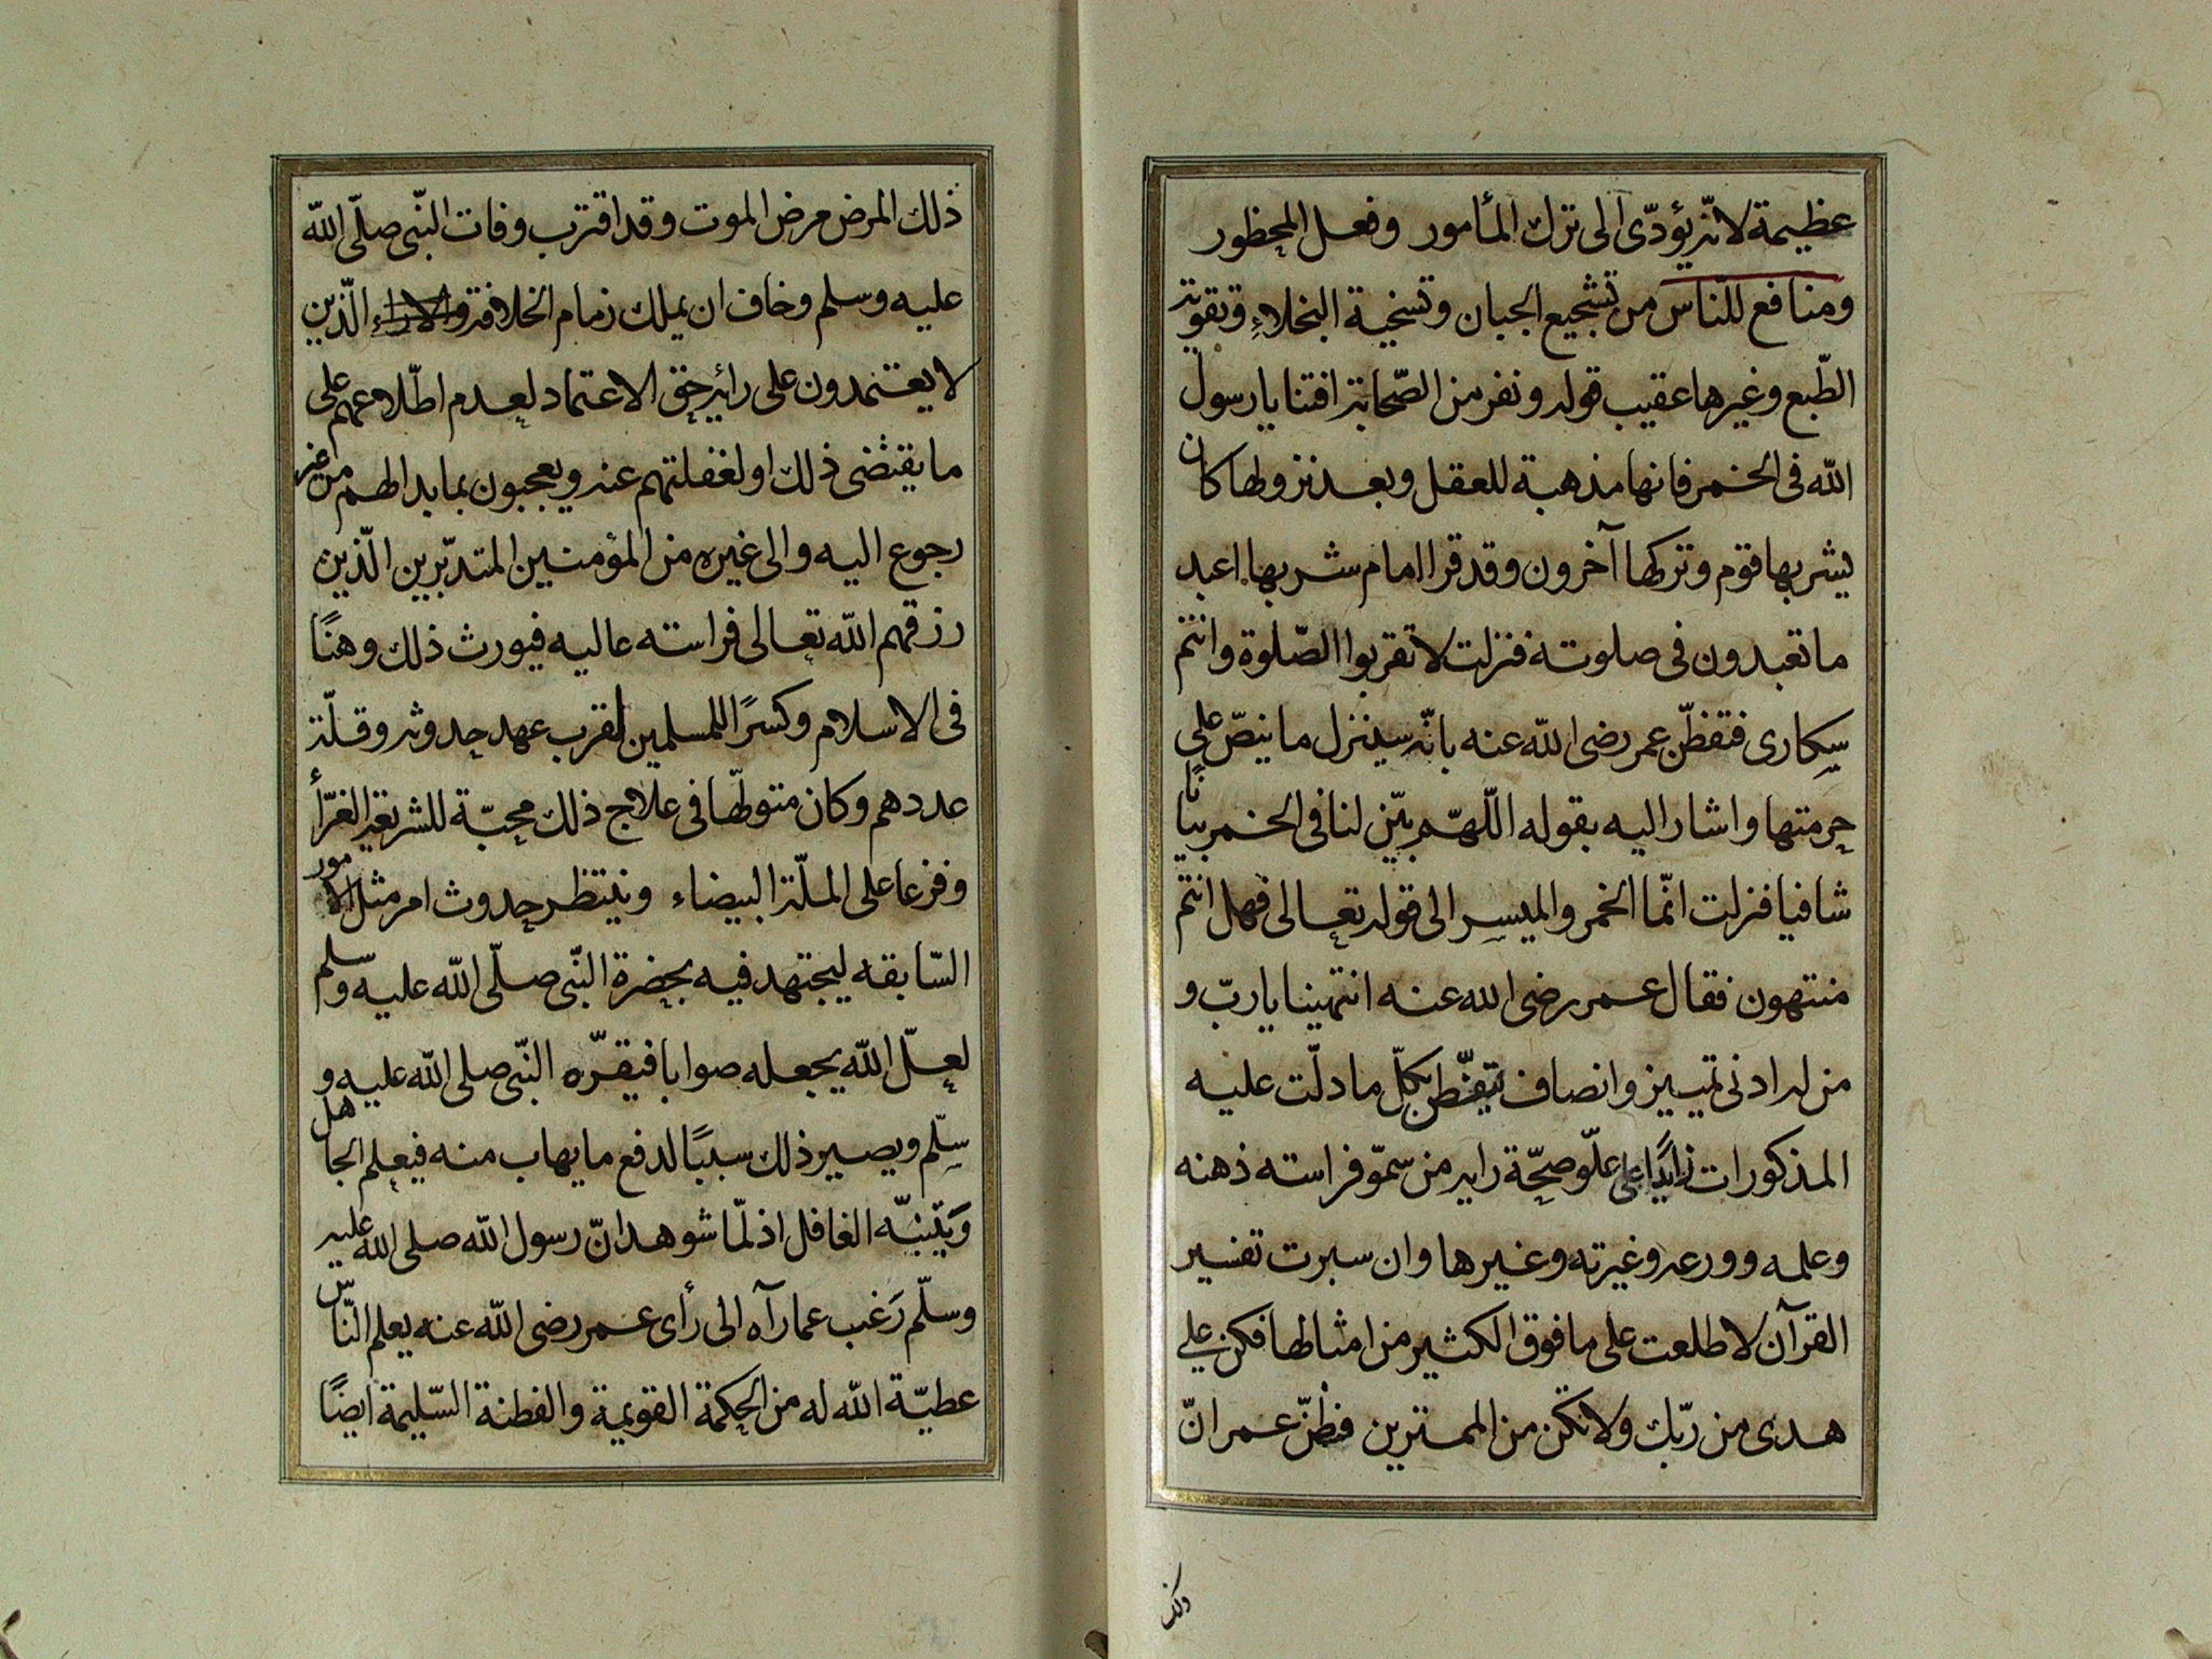 عظيمة لانّه يؤدّى الى ترك المأمور وفعل المحظور
ومنافع للنّاس من تشجيع الجبان وتسخية البخلاء وتقوية
الطّبع وغيرها عقيب قوله ونفر من الصّحابة افتنا يا رسول
الله فى الخمر فانها مذهبة للعقل وبعد نزولها كان
يشربها قوم وتركها آخرون وقد قرا امام شربها اعبد
ما تعبدون فى صلوته فنزلت لا تقربوا الصّلوة وانتم
سكارى فتفظّن عمر رضى الله عنه بانّه سينزل ما ينصّ على
حرمتها واشار اليه بقوله اللّهمّ بيّن لنا فى الخمر بيانًا
شافيا فنزلت انّما الخمر والميسر الى قوله تعالى فهل انتم
منتهون فقال عمر رضى الله عنه انتهينا يا ربّ و
من له ادنى تمييز وانصاف يتفطّن بكلّ ما دلّت عليه
المذكورات زايدًا على علّو صحّة رايه من سموّ فراسته ذهنه
وعلمه وورعه وغيرته وغيرها وان سبرت تفسير
القرآن لاطلعت على ما فوق الكثير من امثالها فكن على
هدى من ربّك ولا تكن من الممترين فظنّ عمر انّ
ذلك
ذلك المرض مرض الموت وقد اقترب وفات النّبى صلّى الله
عليه وسلم وخاف ان يملك زمام الخلافة الّذين
لا يعتمدون على رائه حق الاعتماد لعدم اطّلاعهم على
ما يقتضى ذلك او لغفلتهم عنه ويعجبون بما بدا لهم من غير
رجوع اليه والى غيره من المؤمنين المتدبّرين الّذين
رزقهم الله تعالى فراسته عاليه فيورث ذلك وهنًا
فى الاسلام وكسرًا للمسلمين لقرب عهد حدوثه وقلّة
عددهم وكان متوطّها فى علاج ذلك محبّة للشريعة الغرّأ
وفزعا على الملّة البيضاء وينتظر حدوث امر مثل الامور
السّابقه ليجتهد فيه بحضرة النّبى صلّى الله عليه وسلم
لعلّ الله يجعله صوابا فيقرّه النّبى صلى الله عليه و
سلّم ويصير ذلك سببًا لدفع ما يهاب منه فيعلم الجاهل
وَيتنبّه الغافل اذ لمّا شوهد انّ رسول الله صلى الله عليه
وسلّم رَغب عما رآه الى رأى عمر رضى الله عنه يعلم النّاس
عطيّة الله له من الحكمة القويمة والفطنة السّليمة ايضًا